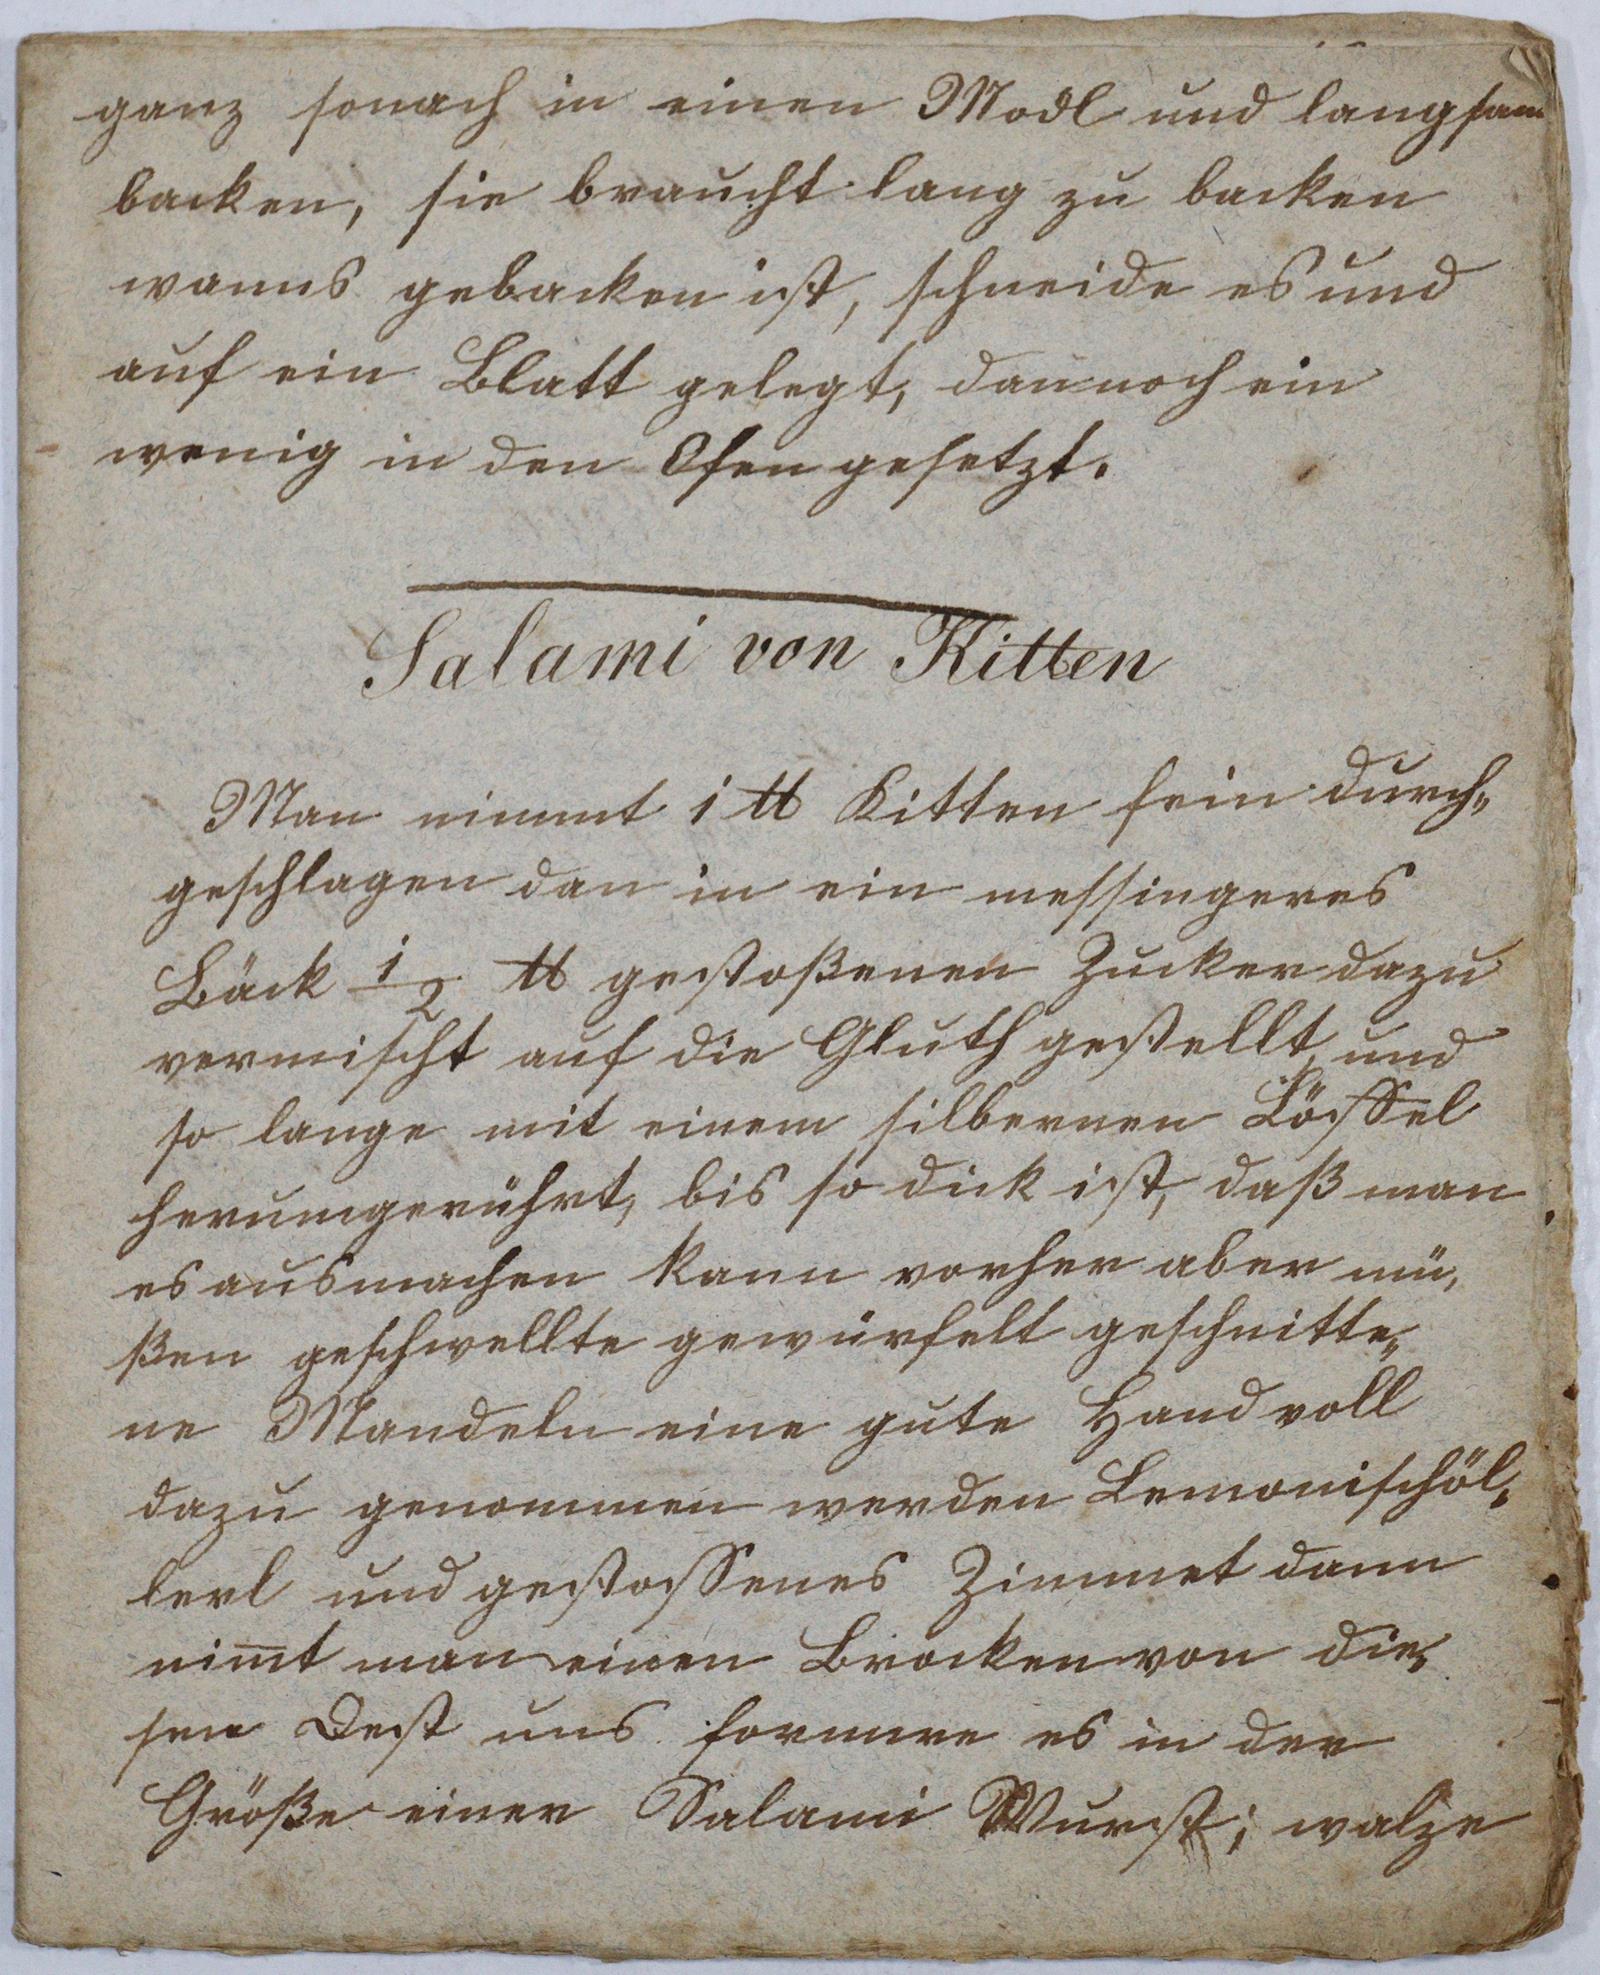 ganz sonach in einen Modl und langsam
backen, sie braucht lang zu backen
wanns gebacken ist, schneide es und
auf ein Blatt gelegt, dan noch ein
wenig in den Ofen gesetzt.
Salami von Kitten
Man nimmt 1 ℔ Kitten fein durch„
geschlagen dan in ein messingeres
Bäck 1/2 ℔ gestoßenen Zucker dazu
vermischt auf die Gluth gestellt, und
so lange mit einem silbernen Löffel
herumgerührt, bis so dick ist, daß man
es ausmachen kann vorher aber mü„
ßen geschwellte gewürfelt geschnitte„
ne Mandeln eine gute Hand voll
dazu genommen werden Lemonischöl„
lerl und gestossenes Zimmet dann
nim̅t man einen Brocken von die„
sen Dest uns formire es in der
Größe einer Salami Wurst; walze